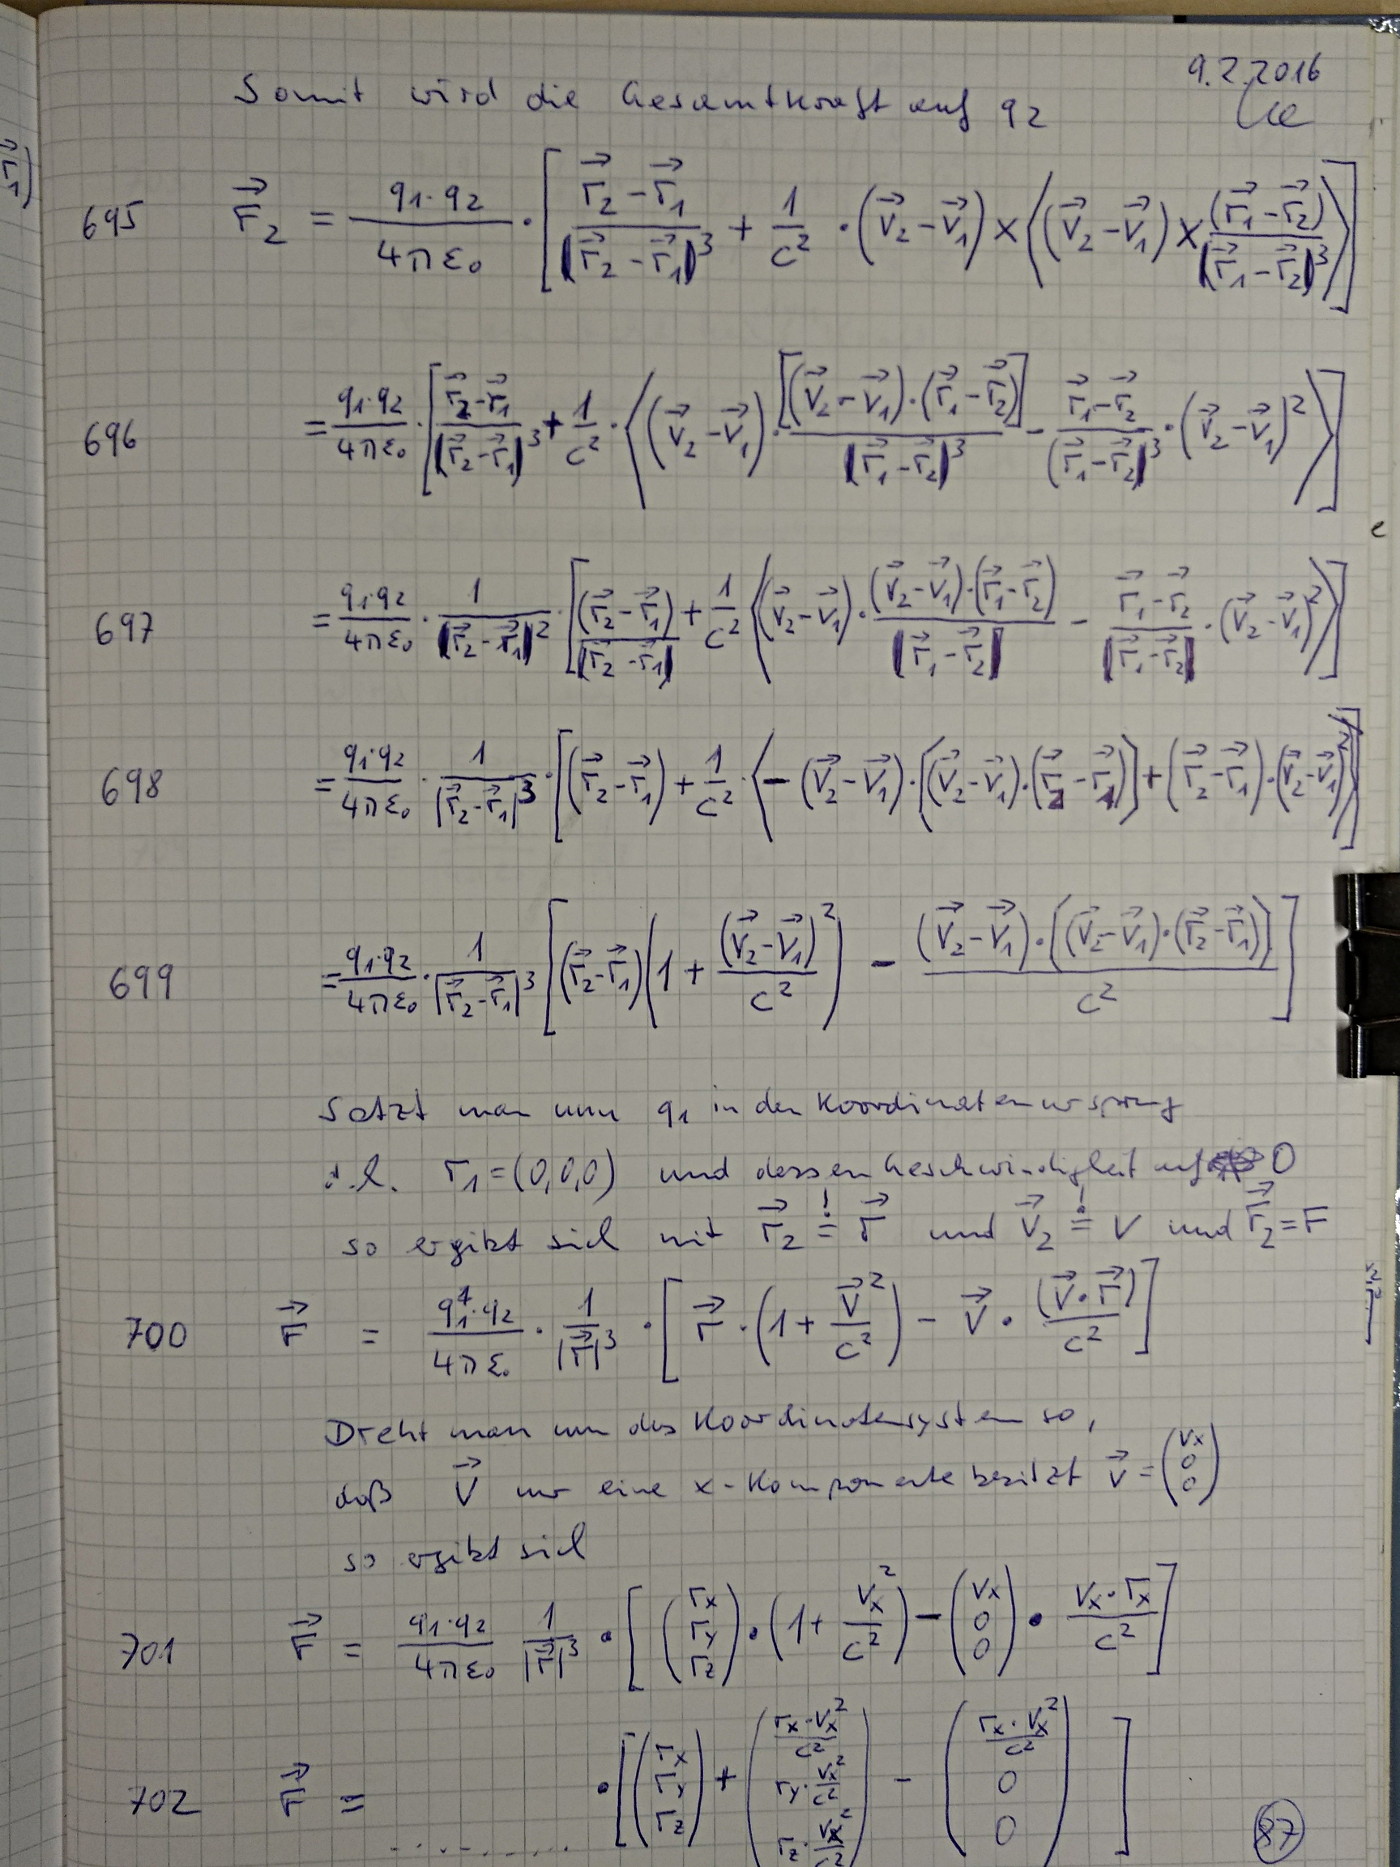 9.2.2016
Somit wird die Gesamtkraft auf q2
695 \vec{F}_2 = \frac{q_1 \cdot q_2}{4\pi\varepsilon_0} \cdot [ \frac{\vec{r}_2 - \vec{r}_1}{|\vec{r}_2 - \vec{r}_1|^3} + \frac{1}{c^2} \cdot (\vec{v}_2 - \vec{v}_1) × ⟨ (\vec{v}_2 - \vec{v}_1) × \frac{(\vec{r}_1 - \vec{r}_2)}{|\vec{r}_1 - \vec{r}_2|^3} ⟩ ]
696 = \frac{q_1 \cdot q_2}{4\pi\varepsilon_0} \cdot [ \frac{\vec{r}_2 - \vec{r}_1}{|\vec{r}_2 - \vec{r}_1|^3} + \frac{1}{c^2} \cdot ⟨ (\vec{v}_2 - \vec{v}_1) \cdot \frac{[(\vec{v}_2 - \vec{v}_1) \cdot (\vec{r}_1 - \vec{r}_2)]}{|\vec{r}_1 - \vec{r}_2|^3} - \frac{\vec{r}_1 - \vec{r}_2}{|\vec{r}_1 - \vec{r}_2|^3} \cdot (\vec{v}_2 - \vec{v}_1)^2 ⟩ ]
697 = \frac{q_1 \cdot q_2}{4\pi\varepsilon_0} \cdot \frac{1}{|\vec{r}_2 - \vec{r}_1|^2} \cdot [ \frac{(\vec{r}_2 - \vec{r}_1)}{|\vec{r}_2 - \vec{r}_1|} + \frac{1}{c^2} ⟨ (\vec{v}_2 - \vec{v}_1) \cdot \frac{(\vec{v}_2 - \vec{v}_1) \cdot (\vec{r}_1 - \vec{r}_2)}{|\vec{r}_1 - \vec{r}_2|} - \frac{\vec{r}_1 - \vec{r}_2}{|\vec{r}_1 - \vec{r}_2|} \cdot (\vec{v}_2 - \vec{v}_1)^2 ⟩ ]
698 = \frac{q_1 \cdot q_2}{4\pi\varepsilon_0} \cdot \frac{1}{|\vec{r}_2 - \vec{r}_1|^3} \cdot [ (\vec{r}_2 - \vec{r}_1) + \frac{1}{c^2} \cdot ⟨ - (\vec{v}_2 - \vec{v}_1) \cdot [(\vec{v}_2 - \vec{v}_1) \cdot (\vec{r}_2 - \vec{r}_1)] + (\vec{r}_2 - \vec{r}_1) \cdot (\vec{v}_2 - \vec{v}_1)^2 ⟩ ]
699 = \frac{q_1 \cdot q_2}{4\pi\varepsilon_0} \cdot \frac{1}{|\vec{r}_2 - \vec{r}_1|^3} [ (\vec{r}_2 - \vec{r}_1) ( 1 + \frac{(\vec{v}_2 - \vec{v}_1)^2}{c^2} ) - \frac{(\vec{v}_2 - \vec{v}_1) \cdot [(\vec{v}_2 - \vec{v}_1) \cdot (\vec{r}_2 - \vec{r}_1)]}{c^2} ]
Setzt man nun q1 in den Koordinatenursprung
d.h. r_1 = (0,0,0) und dessen Geschwindigkeit auf 0
so ergibt sich mit \vec{r}_2 \overset{!}{=} \vec{r} und \vec{v}_2 \overset{!}{=} v und \vec{F}_2 = F
700 \vec{F} = \frac{q_1 \cdot q_2}{4\pi\varepsilon_0} \cdot \frac{1}{|\vec{r}|^3} \cdot [ \vec{r} \cdot ( 1 + \frac{\vec{v}^2}{c^2} ) - \vec{v} \cdot \frac{(\vec{v} \cdot \vec{r})}{c^2} ]
Dreht man nun das Koordinatensystem so,
daß \vec{v} nur eine x-Komponente besitzt \vec{v} = \begin{pmatrix} v_x \\ 0 \\ 0 \end{pmatrix}
so ergibt sich
701 \vec{F} = \frac{q_1 \cdot q_2}{4\pi\varepsilon_0} \frac{1}{|\vec{r}|^3} \cdot [ \begin{pmatrix} r_x \\ r_y \\ r_z \end{pmatrix} \cdot ( 1 + \frac{v_x^2}{c^2} ) - \begin{pmatrix} v_x \\ 0 \\ 0 \end{pmatrix} \cdot \frac{v_x \cdot r_x}{c^2} ]
702 \vec{F} = .......... \cdot [ \begin{pmatrix} r_x \\ r_y \\ r_z \end{pmatrix} + \begin{pmatrix} \frac{r_x \cdot v_x^2}{c^2} \\ r_y \cdot \frac{v_x^2}{c^2} \\ r_z \cdot \frac{v_x^2}{c^2} \end{pmatrix} - \begin{pmatrix} \frac{r_x \cdot v_x^2}{c^2} \\ 0 \\ 0 \end{pmatrix} ]
87